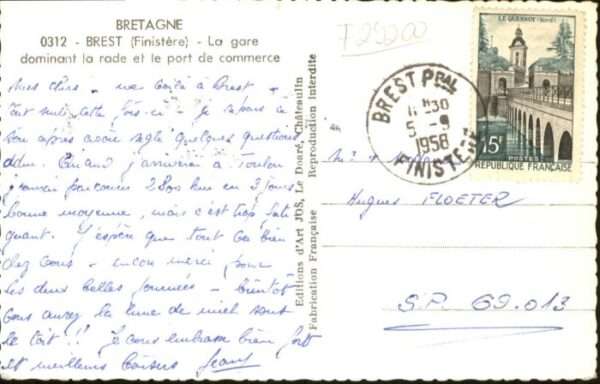 BRETAGNE
0312 - BREST (Finistère) - La gare
dominant la rade et le port de commerce
T29200
LE QUESNOY (Nord)
15F
POSTES
REPUBLIQUE FRANÇAISE
BREST PPAL
11H30
5 - 9
1958
FINISTERE
Mes chers - me voilà à Brest -
tout seul cette fois-ci - Je repars ce
soir après avoir réglé quelques questions
adm. Quand j'arriverai à Toulon
j'aurai parcouru 2800 km en 3 jours
bonne moyenne, mais c'est trop fati
guant. J'espère que tout va bien
chez vous - encore merci pour
les deux belles journées - bientôt
vous aurez la lune de miel sous
le toit !! Je vous embrasse bien fort
et meilleurs baisers Jean
Editions d'Art JOS, Le Doaré, Châteaulin
Fabrication Française
Reproduction interdite
Hugues FLOETER
S.P. 69.013